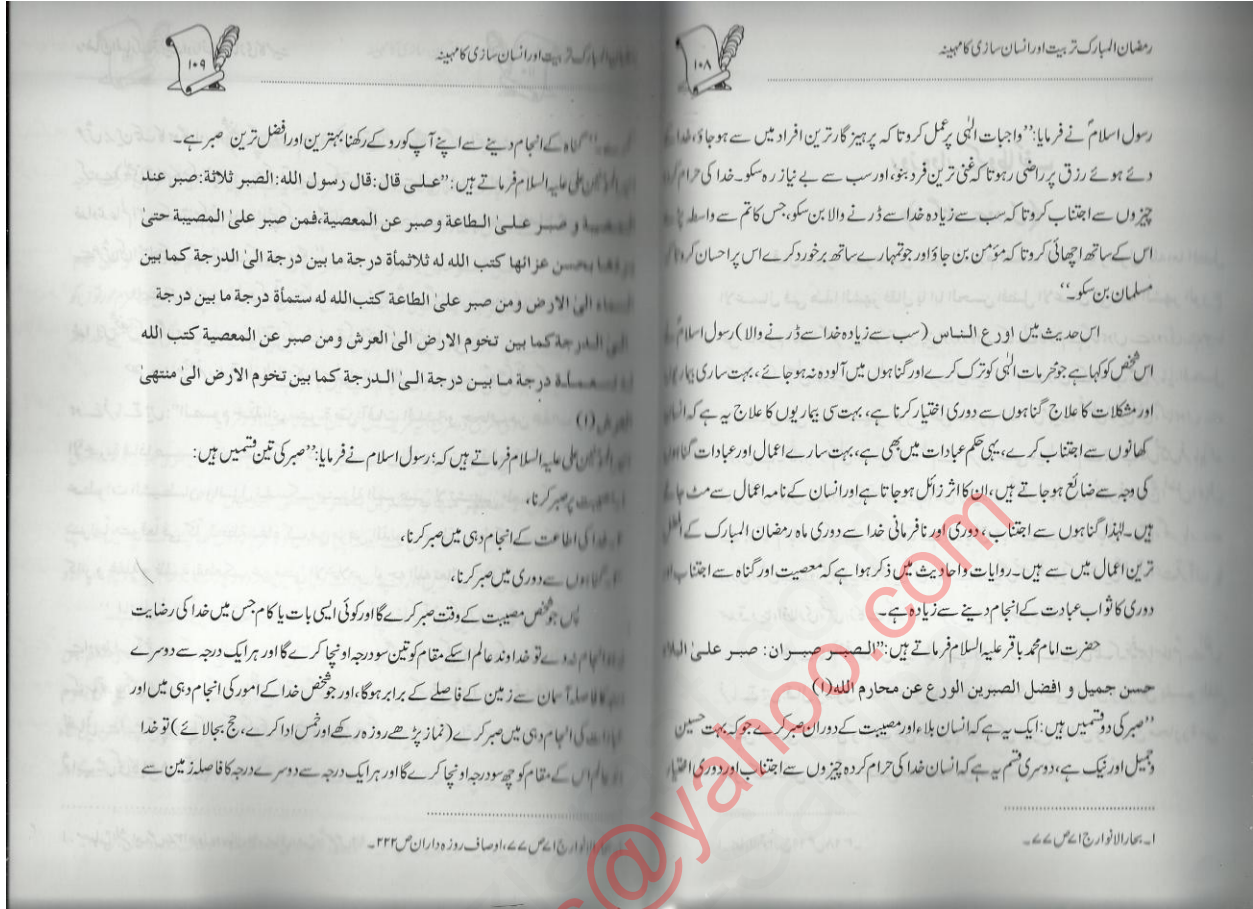 رمضان المبارک تربیت اور انسان سازی کا مہینہ
۱۰۸
رسول اسلامؐ نے فرمایا:’’واجبات الٰہی پر عمل کرو تا کہ پرہیز گار ترین افراد میں سے ہو جاؤ، خدا کے
دئے ہوئے رزق پر راضی رہو تا کہ غنی ترین فرد بنو، اور سب سے بے نیاز رہ سکو۔ خدا کی حرام کردہ
چیزوں سے اجتناب کرو تا کہ سب سے زیادہ خدا سے ڈرنے والا بن سکو، جس کا تم سے واسطہ پڑے
اس کے ساتھ اچھائی کرو تا کہ مؤمن بن جاؤ اور جو تمہارے ساتھ برخورد کرے اس پر احسان کرو تا کہ
مسلمان بن سکو۔‘‘
اس حدیث میں اورع الناس (سب سے زیادہ خدا سے ڈرنے والا) رسول اسلامؐ نے
اس شخص کو کہا ہے جو محرمات الٰہی کو ترک کرے اور گناہوں میں آلودہ نہ ہو جائے، بہت ساری بیماریوں
اور مشکلات کا علاج گناہوں سے دوری اختیار کرنا ہے، بہت سی بیماریوں کا علاج یہ ہے کہ انسان
کھانوں سے اجتناب کرے، یہی حکم عبادات میں بھی ہے، بہت سارے اعمال اور عبادات گناہوں
کی وجہ سے ضائع ہو جاتے ہیں، ان کا اثر زائل ہو جاتا ہے اور انسان کے نامہ اعمال سے مٹ جاتے
ہیں۔ لہٰذا گناہوں سے اجتناب، دوری اور نافرمانی خدا سے دوری ماہ رمضان المبارک کے افضل
ترین اعمال میں سے ہیں۔ روایات و احادیث میں ذکر ہوا ہے کہ معصیت اور گناہ سے اجتناب اور
دوری کا ثواب عبادت کے انجام دینے سے زیادہ ہے۔
حضرت امام محمد باقر علیہ السلام فرماتے ہیں:’’الصبر صبران: صبر علیٰ البلاء
حسن جمیل و افضل الصبرین الورع عن محارم الله(۱)
’’صبر کی دو قسمیں ہیں: ایک یہ ہے کہ انسان بلاء اور مصیبت کے دوران صبر کرے جو کہ بہت حسین
و جمیل اور نیک ہے، دوسری قسم یہ ہے کہ انسان خدا کی حرام کردہ چیزوں سے اجتناب اور دوری اختیار
۱۔ بحار الانوار ج ۷۱ ص ۷۷۔
المبارک تربیت اور انسان سازی کا مہینہ
۱۰۹
کرے۔‘‘ گناہ کے انجام دینے سے اپنے آپ کو روکے رکھنا بہترین اور افضل ترین صبر ہے۔
علی علیہ السلام فرماتے ہیں:’’عـلـی قال: قال رسول الله: الصبر ثلاثة: صبر عند
المصیبة و صبر علی الطاعة و صبر عن المعصیة، فمن صبر علیٰ المصیبة حتیٰ
یردها بحسن عزائها کتب الله له ثلاثمأة درجة ما بین درجة الیٰ الدرجة کما بین
السماء الیٰ الارض ومن صبر علیٰ الطاعة کتب الله له ستمأة درجة ما بین درجة
الیٰ الدرجة کما بین تخوم الارض الیٰ العرش ومن صبر عن المعصیة کتب الله
له تسعمأة درجة ما بین درجة الیٰ الدرجة کما بین تخوم الارض الیٰ منتهیٰ
العرش(۱)
علی علیہ السلام فرماتے ہیں کہ: رسول اسلام نے فرمایا:’’صبر کی تین قسمیں ہیں:
مصیبت پر صبر کرنا،
۲۔ خدا کی اطاعت کے انجام دہی میں صبر کرنا،
گناہوں سے دوری میں صبر کرنا،
پس جو شخص مصیبت کے وقت صبر کرے گا اور کوئی ایسی بات یا کام جس میں خدا کی رضایت
نہ ہو انجام نہ دے تو خداوند عالم اسکے مقام کو تین سو درجہ اونچا کرے گا اور ہر ایک درجہ سے دوسرے
کا فاصلہ آسمان سے زمین کے فاصلے کے برابر ہو گا، اور جو شخص خدا کے امور کی انجام دہی میں اور
عبادات کی انجام دہی میں صبر کرے (نماز پڑھے روزہ رکھے اور خمس ادا کرے، حج بجا لائے) تو خدا
عالم اس کے مقام کو چھ سو درجہ اونچا کرے گا اور ہر ایک درجہ سے دوسرے درجہ کا فاصلہ زمین سے
بحار الانوار ج ۷۱ ص ۷۷، اوصاف روزہ داران ص ۲۲۲۔
@yahoo.com